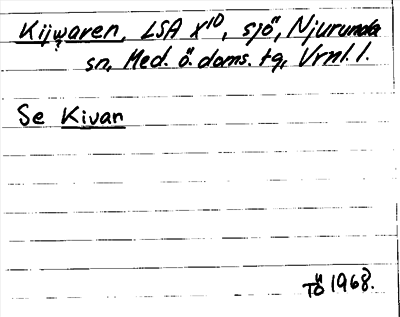 Kijwaren, LSA X¹⁰, sjö, Njurunda
sn, Med. ö. doms. tg, Vrnl. l.
Se Kivan
TÖ 1968.